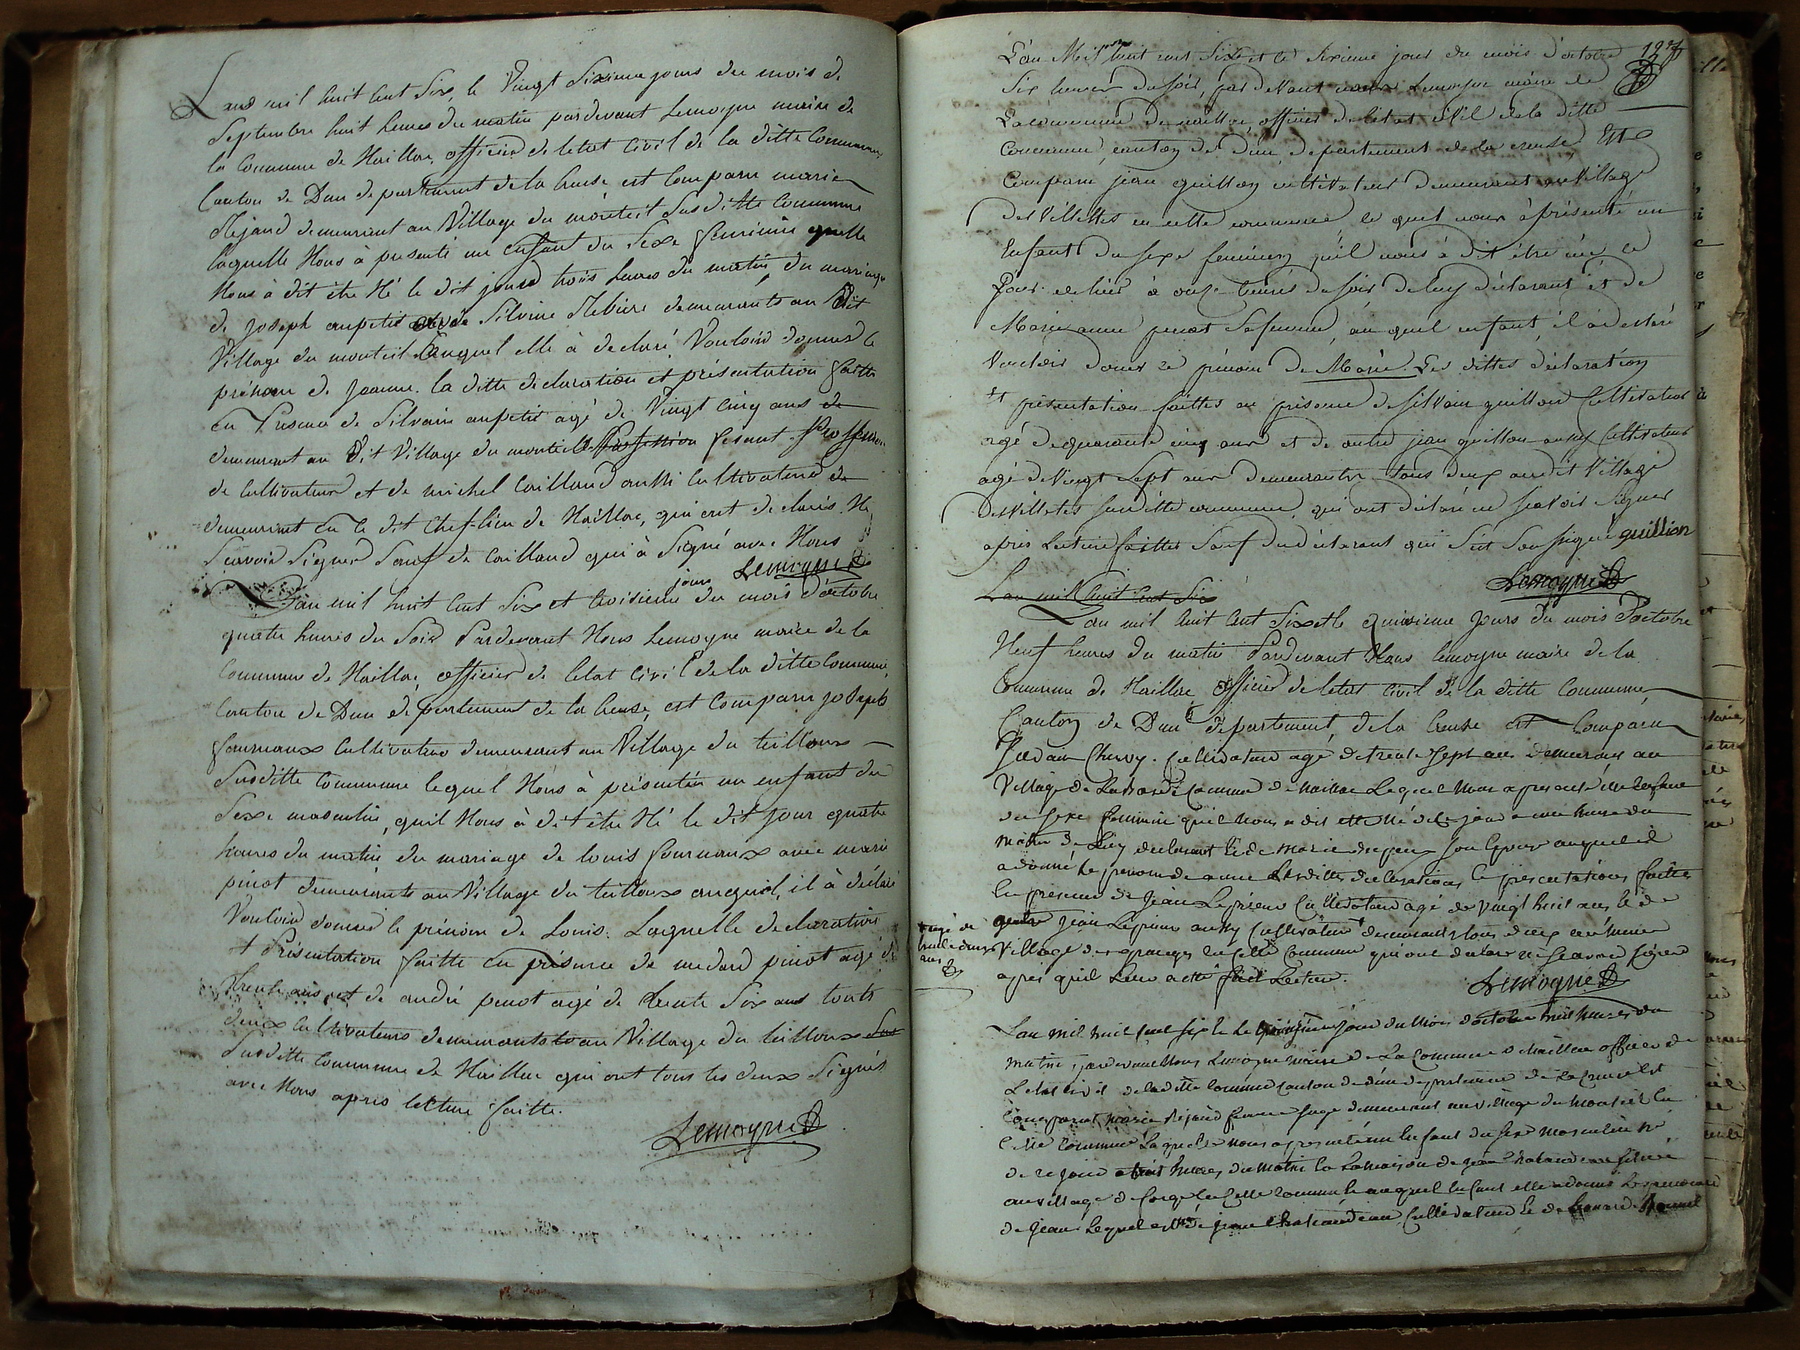 Lans mil huit cent Six, le Vingt Sixieme jours du mois de
Septembre huit heures du matin pardevant Lemoyne maire de
la Commune de Naillac, officier de letat Civil de la ditte Commune
Canton de Dun departement de la Creuse est Comparu marie
Rejaud demeurant au Village du monteil Susditte Commune
laquelle Nous à presenté un Enfant du Sexe feminin quelle
Nous à dit être Né le dit jours trois heures du matin du mariage
de Joseph aupetit de Silvine demeurants au Dit
Village du monteil auquel elle à declaré Vouloir donner le
prénom de Jeanne. la ditte declaration et présentation faitte
En Presence de Silvain aupetit agé de Vingt Cinq ans de
demeurant au Dit Village du monteil Proffession fesant Proffession
de Cultivateur et de michel Caillaud aussi Cultivateur de
demeurant en le dit Chef-lieu de Naillac, qui ont declaré Ne
Scavoir Signer Sauf de Caillaud qui à Signé avec Nous
Lemoyne
jours
Lan mil huit Cent Six et troisieme du mois d'octobre
quatre heures du Soir Pardevant Nous Lemoyne maire de la
Commune de Naillac, officier de letat Civil de la ditte Commune,
Canton de Dun departement de la Creuse, est Comparu joseph
fournaux Cultivateur demeurant au Village du teilloux
Susditte Commune lequel Nous à présentée un enfant du
Sexe masculin, quil Nous à dit être Né le dit jour quatre
heures du matin du mariage de Louis fournaux avec marie
pinot demeurants au Village du teilloux auquel, il à déclaré
Vouloir donner le prénom de Louis. Laquelle declaration
et Présentation faitte en présence de medard pinot agé de
trente ans, et de andré pinot agé de trente Six ans touts
deux Cultivateurs demeurants au Village du teilloux Sus
Susditte Commune de Naillac qui ont tous les deux Signés
avec Nous apres lecture faitte.
Lemoyne
L'an Mil huit cent Six et le Sixieme jour du mois d'octobre
Six heures du soir, par devant Lemoyne maire de
La commune de naillac officier de letat civil de la ditte
Commune, canton de dun, departement de la creuse Est
Comparu jean guillon cultivateur demeurant au Village
des Villettes en cette commune, le quel nous à présenté un
Enfant du sexe feminin quil nous à dit être née le
jour de hier à onze heures du soir de luy déclarant et de
Marie anne pinot Sa femme, au quel enfant il à declaré
Vouloir donner le prénom de Marie. Les dittes déclaration
et présentation faittes en présence de silvain guillon Cultivateur
agé de quarante cinq ans et de autre jean guillon aussy Cultivateur
agé de Vingt Sept ans demeurants tous deux au dit Village
des Villettes susditte commune, qui ont déclaré ne scavoir signer
après Lecture faitte Sauf du déclarant qui S'est Soussigné guillion
Lemoyne
Lan mil huit cent Six
Lan mil huit Cent Six et le quinsieme Jours du mois Doctobre
Neuf heures du matin Pardevant Nous lemoyne maire de la
Commune de Naillac officier de letat Civil de la ditte Commune
Canton de Dun departement de la Creuse est Comparu
Chervy. Cultivateur agé de trente Sept ans demeurant au
Village de Commune de naillac Lequel Nous a presenté un Enfant
du sexe feminin quil Nous a dit Né de ce jour a une heure du
matin de Luy declarant et de Marie Son Epouse auquel il
a donné le prenom de anne Les dittes declarations et presentations faittes
En presence de Jean Leprieur Cultivateur agé de Vingt huit ans, et de
autre Jean Leprieur aussy Cultivateur demeurant tous deux au même
agé de
trente deux
ans
Village des granges en Cette Commune qui ont declaré ne Scavoir signer
apres quil Leur a été fait Lecture.
Lemoyne
Lan mil huit Cent Six et le jour du Mois doctobre huit heures du
matin, par devant Nous Lemoyne Maire de La Commune de Naillac officier de
Letat Civil de laditte Commune Canton de dun departement de La Creuse Est
Comparut Marie Rejaud femme sage demeurant au village du Monteil En
Cette Commune Laquelle nous a presenté un Enfant du sexe masculin né
de ce jour a trois heures du matin En La maison de
au village de forge En Cette Commune auquel Enfant elle a donné Le prenom
de Jean Lequel est né de jean Cultivateur Et de